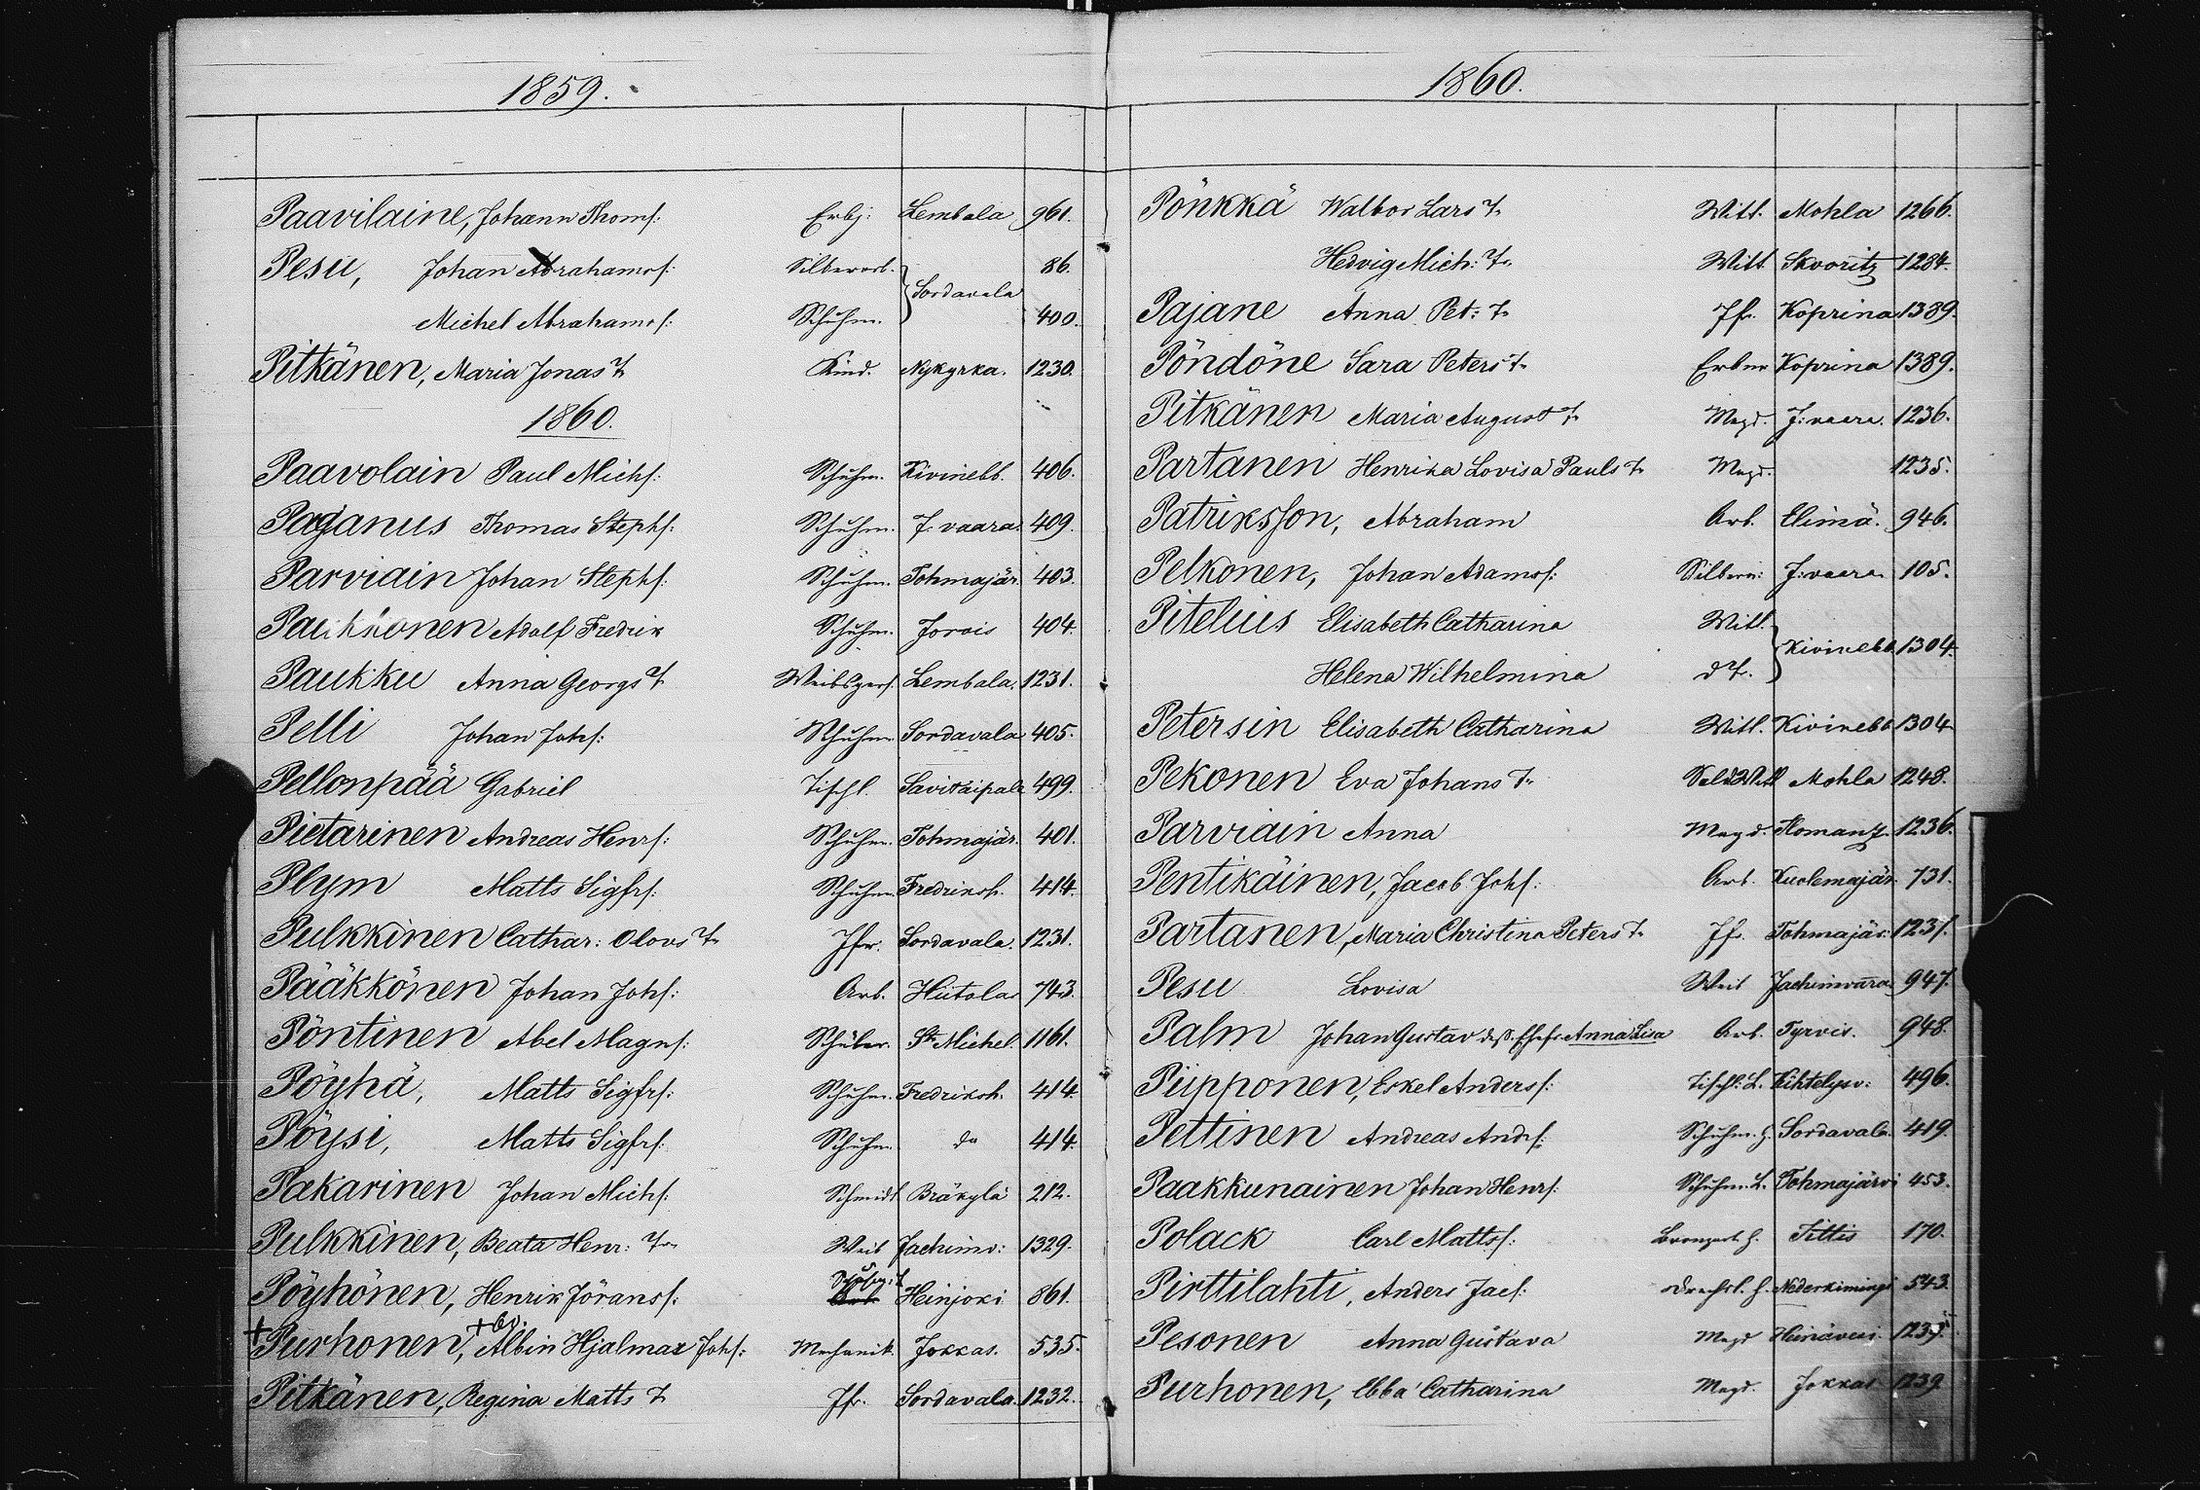 1859.
Paavilaine, Johann Thoms: Erbj: Lembala 961.
Pesu, Johan Abrahams: Silberarb. Sordavala 86.
Michel Abrahams: Schuhm. 400.
Pitkänen, Maria Jonas T. Kind. Nykyrka. 1230.
1860.
Paavolain Paul Michs: Schuhm. Kivinebb. 406.
Paganus Thomas Stephs: Schuhm. J: vaara. 409.
Parviain Johan Stephs: Schuhm. Tohmajär. 403.
Paukkonen Adolf Fredrik Schuhm. Jorois 404.
Paukku Anna Georgs T. Weibspers. Lembala. 1231.
Pelli Johan Johs: Schuhm. Sordavala 405.
Pellonpää Gabriel Tischl. Savitaipale 499.
Pietarinen Andreas Henrs: Schuhm. Tohmajär. 401.
Plym Matts Sigfrs: Schuhm. Fredriksh. 414.
Pulkkinen Cathar: Olovs T. Jfr. Sordavala. 1231.
Pääkkönen Johan Johs: Arb. Hiitola 743.
Pöntinen Abel Magns: Schüler. St. Michel. 1161.
Pöyhä, Matts Sigfrs: Schuhm. Fredriksh. 414.
Pöysi, Matts Sigfrs: Schuhm. do 414.
Pakarinen Johan Michs: Schmidt Bräkylä 212.
Pulkkinen, Beata Henr: T. Weib Jachimv: 1329.
Pöyhönen, Henrik Jörans: Heinjoki 861.
+ Purhonen, Albin Hjalmar Johs: Mechanik. Jokkas. 535.
Pitkänen, Regina Matts T. Jfr. Sordavala. 1232.
1860.
Pönkkä Walbor Lars T. Witt. Mohla 1266.
Hedvig Mich: T. Witt. Skvoritz 1284.
Pajane Anna Pet: T. Jfr. Koprina 1389.
Pöndöne Sara Peters T. Erbnr Koprina 1389.
Pitkänen Maria August T. Magd. J: vaara. 1236.
Partanen Henrika Lovisa Pauls T. Magd. 1235.
Patriksson, Abraham Arb. Elimä. 946.
Pelkonen, Johan Adams: Silberar: J: vaara 105.
Pitelius Elisabeth Catharina Witt. Kivinebb. 1304.
Helena Wilhelmina d T.
Petersin Elisabeth Catharina Witt. Kivinebb 1304
Pekonen Eva Johans T. Sold Witt Mohla 1248.
Parviain Anna Magd. Ilomantz. 1236.
Pentikäinen, Jacob Johs: Arb. Kuolemajär. 731.
Partanen, Maria Christina Peters T. Jfr. Tohmajär: 1231.
Pesu Lovisa Weib Jachimvara 947.
Palm Johan Gustav dess. Ehefr. Anna Lisa Arb. Tyrvis. 948.
Piipponen, Eskel Anderss: Tischl: L. Kihtelysv: 496.
Pettinen Andreas Ands: Schuhm. G. Sordavala. 419.
Paakkunainen Johan Henrs: Schuhm. L. Tohmajärvi 453.
Polack Carl Mattss: Bronzearb. G. Tittis 170.
Pirttilahti, Anders Jacs: Drechsl. G. Nederkimingi 543.
Pesonen Anna Gustava Magd Heinävesi. 1235.
Purhonen, Ebba Catharina Magd. Jokkas 1239